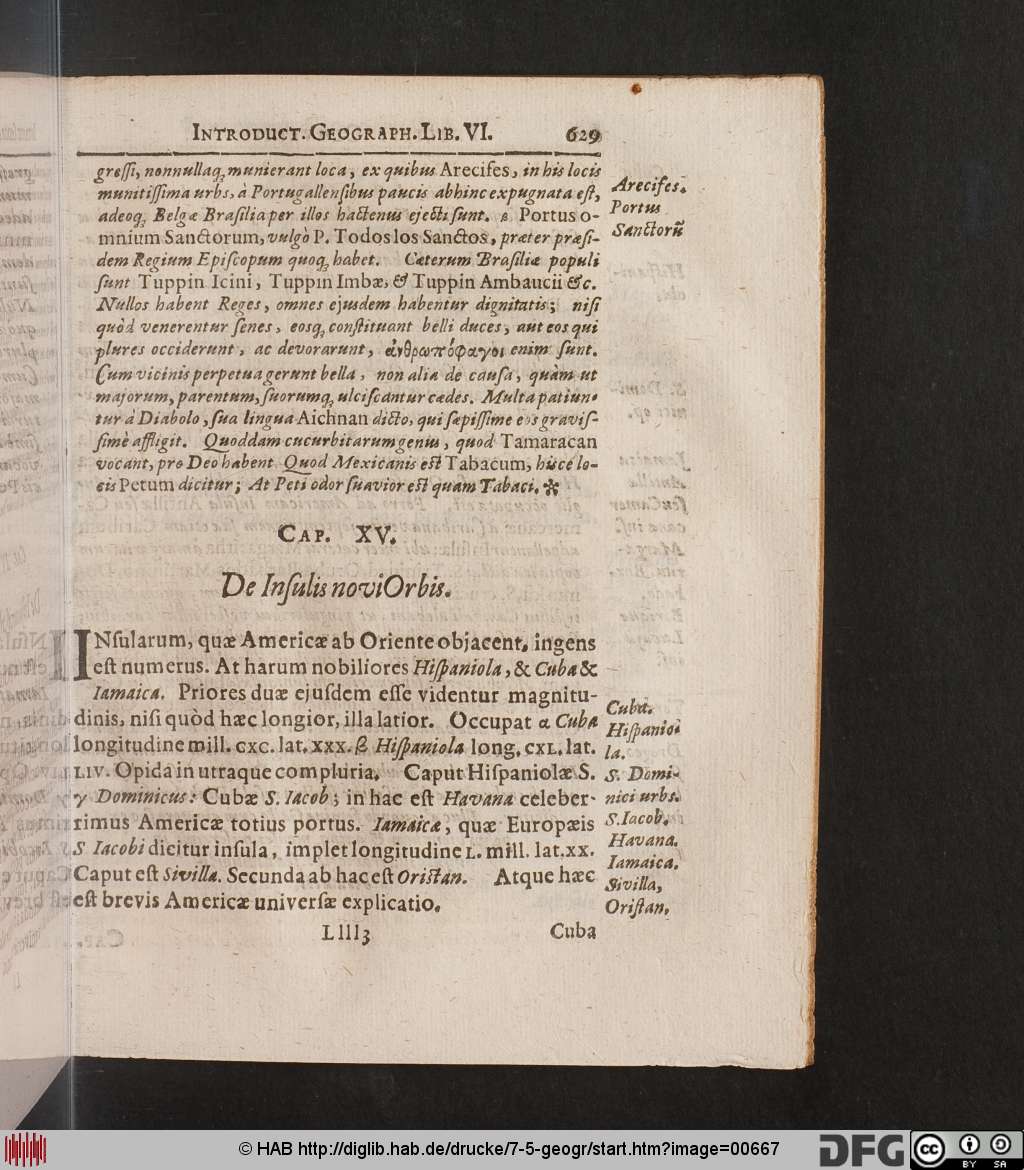 INTRODUCT. GEOGRAPH. LIB. VI. 629
gressi, nonnullaq; munierant loca, ex quibus Arecifes, in his locis
munitissima urbs, à Portugallensibus paucis abhinc expugnata est,
adeoq; Belgæ Brasilia per illos hactenus ejecti sunt. Portus o-
mnium Sanctorum, vulgò P. Todos los Sanctos, præter præsi-
dem Regium Episcopum quoq; habet. Cæterum Brasiliæ populi
sunt Tuppin Icini, Tuppin Imbæ, & Tuppin Ambaucii &c.
Nullos habent Reges, omnes ejusdem habentur dignitatis; nisi
quòd venerentur senes, eosq; constituant belli duces, aut eos qui
plures occiderunt, ac devorarunt, ἀνθρωπόφαγοι enim sunt.
Cum vicinis perpetua gerunt bella, non alia de causa, quàm ut
majorum, parentum, suorumq; ulciscantur cædes. Multa patiun-
tur à Diabolo, sua lingua Aichnan dicto, qui sæpissime eos gravis-
simè affligit. Quoddam cucurbitarum genus, quod Tamaracan
vocant, pro Deo habent. Quod Mexicanis est Tabacum, hisce lo-
cis Petum dicitur; At Peti odor suavior est quam Tabaci. *
Arecifes.
Portus
Sanctorũ
CAP. XV.
De Insulis novi Orbis.
INsularum, quæ Americæ ab Oriente objacent, ingens
est numerus. At harum nobiliores Hispaniola, & Cuba &
Iamaica. Priores duæ ejusdem esse videntur magnitu-
dinis, nisi quòd hæc longior, illa latior. Occupat α Cuba
longitudine mill. CXC. lat. XXX. β Hispaniola long. CXL. lat.
LIV. Opida in utraque compluria. Caput Hispaniolæ S.
γ Dominicus: Cubæ S. Iacob; in hac est Havana celeber-
rimus Americæ totius portus. Iamaica, quæ Europæis
S Iacobi dicitur insula, implet longitudine L. mill. lat. XX.
Caput est Sivilla. Secunda ab hac est Oristan. Atque hæc
est brevis Americæ universæ explicatio.
Cuba.
Hispanio-
la.
S. Domi-
nici urbs.
S. Iacob.
Havana.
Iamaica.
Sivilla,
Oristan.
Llll3 Cuba
© HAB http://diglib.hab.de/drucke/7-5-geogr/start.htm?image=00667
DFG
cc
BY SA